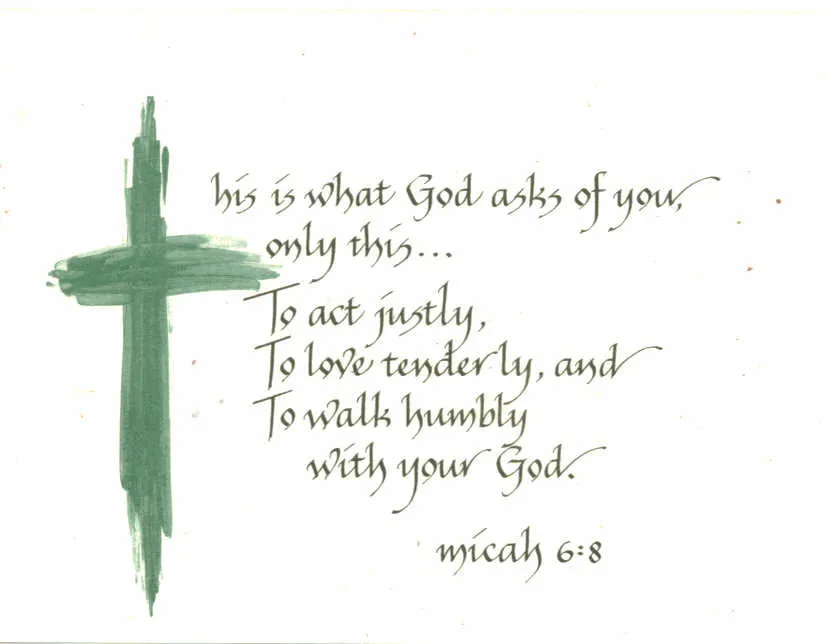 his is what God asks of you,
only this...
To act justly,
To love tenderly, and
To walk humbly
with your God.
micah 6:8